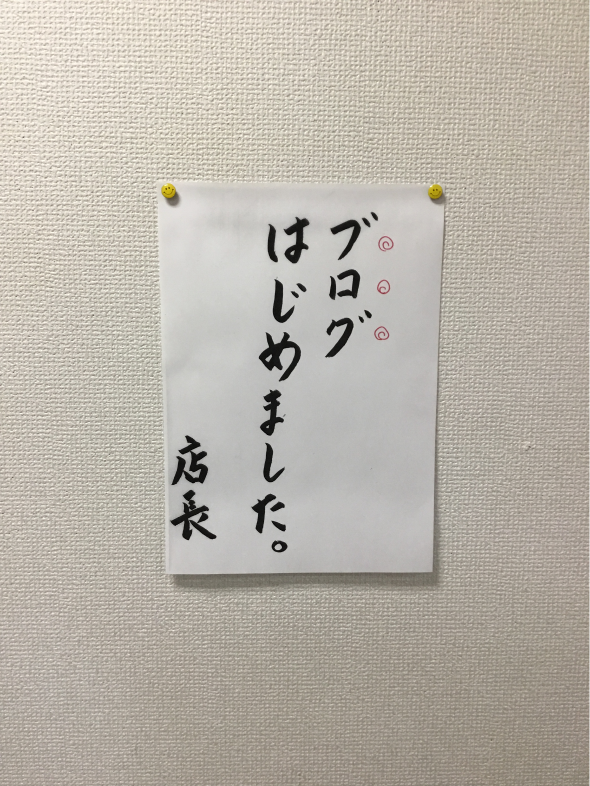 ブログ
はじめました。
店長